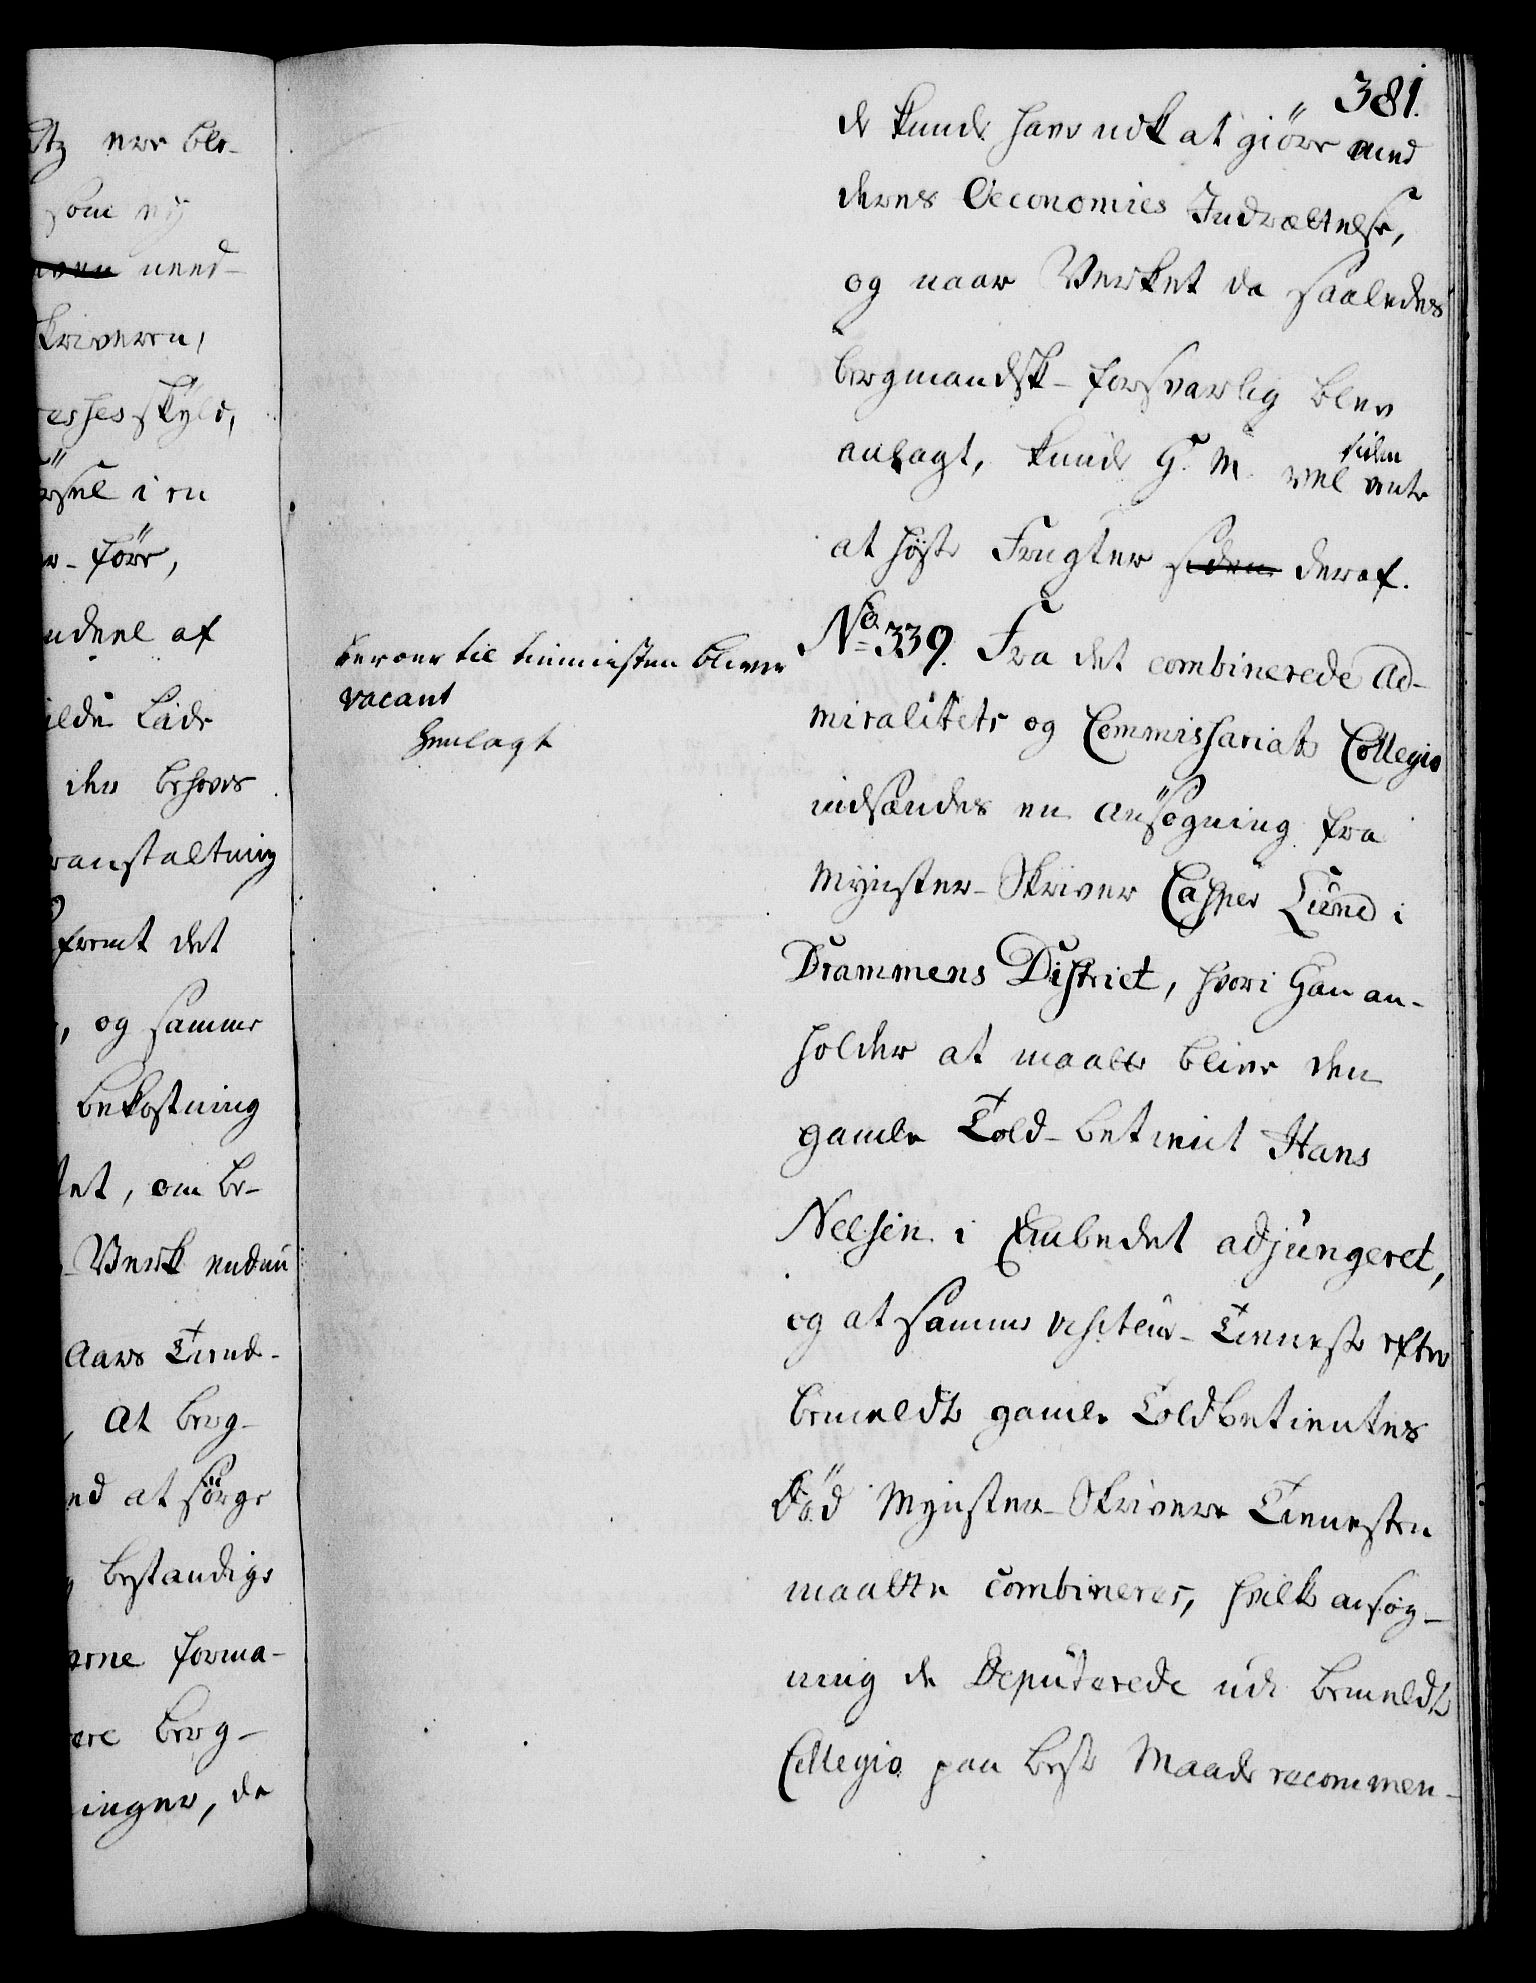 381.
de kunde have nok at giöre med
deres Oeconomies Indrættelse,
og naar Verket da saaledes
bergmandsk-forsvarlig blev
anlagt, kunde H. M. vel siden vente
at høste Frugter siden deraf.
No. 339. Fra det combinerede Ad-
miralitets og Commissariats Collegio
indsendes en ansögning fra
Mynster-Skriver Casper Lund i
Drammens District, hvori Han an-
holder at maatte blive den
gamle Told-betient Hans
Nelsen i Embedet adjungeret,
og at samme visiteur-Tieneste efter
bemeldte gamle Toldbetientes
Död Mynster-Skriver Tienesten
maatte combineres, hvilke ansög-
ning de Deputerede udi bemeldte
Collegio paa beste Maade recommen-
beroer til tienesten bliver
vacant
henlagt
ere ble-
som ny
need-
kriveren,
skyld,
i en
före,
af
Lade
den behøves
ranstaltning
fremt det
, og samme
bekostning
tet, om be-
Verk endnu
Aars Tiende-
, At berg-
ed at sörge
bestandige
erne forma-
ere berg-
inger, da